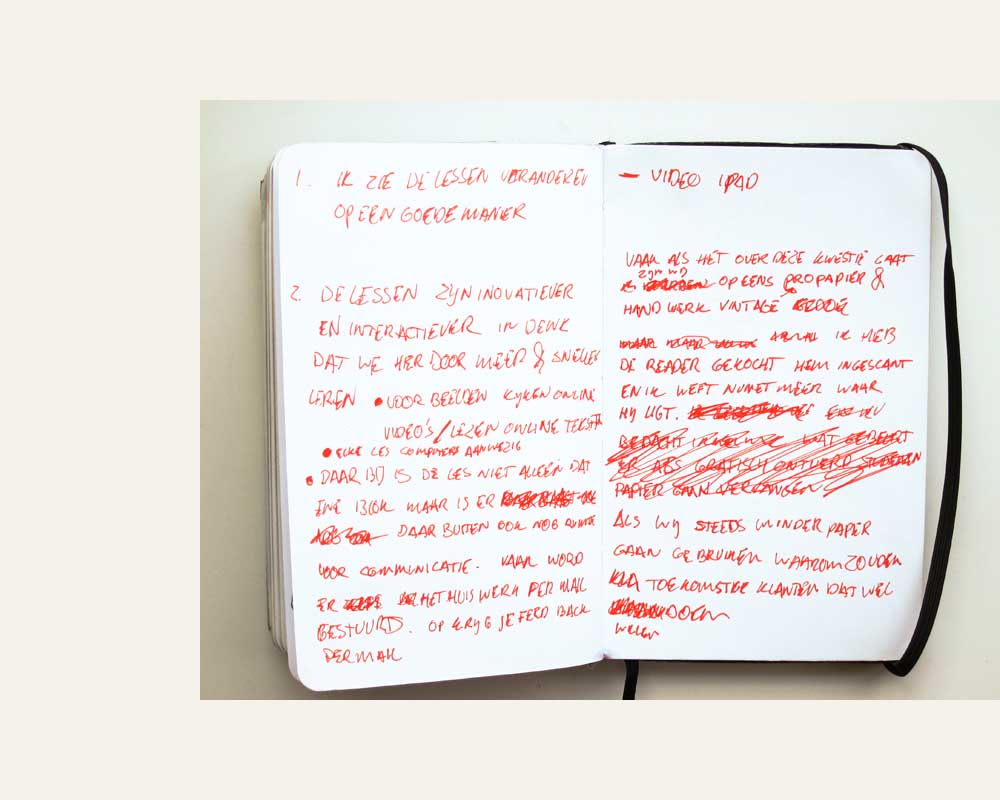 1. IK ZIE DE LESSEN VERANDEREN
OP EEN GOEDE MANIER
2. DE LESSEN ZYN INOVATIEVER
EN INTERACTIEVER IK DENK
DAT WE HIER DOOR MEER & SNELLER
LEREN • VOOR BEELDEN KYKEN ONLINE
VIDEO'S / LEZEN ONLINE TEKSTEN
• ELKE LES COMPUTERS AANWEZIG
• DAAR BIJ IS DE LES NIET ALLEEN DAT
ENE BLOK MAAR IS ER
DAAR BUITEN OOK NOG RUIMTE
VOOR COMMUNICATIE. VAAK WORD
ER HET HUISWERK PER MAIL
GESTUURD. OF KRYG JE FEED BACK
PER MAIL
– VIDEO IPAD
VAAK ALS HET OVER DEZE KWESTIE GAAT
ZYN WY
OPEENS PROPAPIER &
HANDWERK VINTAGE
IK HEB
DE READER GEKOCHT HEM INGESCANT
EN IK WEET NU NIET MEER WAAR
HY LIGT. NU
BEDACHT WAT GEBEURT
ER ALS GRAFISCH ONTWERP STUDENTEN
PAPIER GAAN VERVANGEN
ALS WY STEEDS MINDER PAPIER
GAAN GEBRUIKEN WAAROM ZOUDEN
TOEKOMSTIGE KLANTEN DAT WEL
DOEN
WILLEN